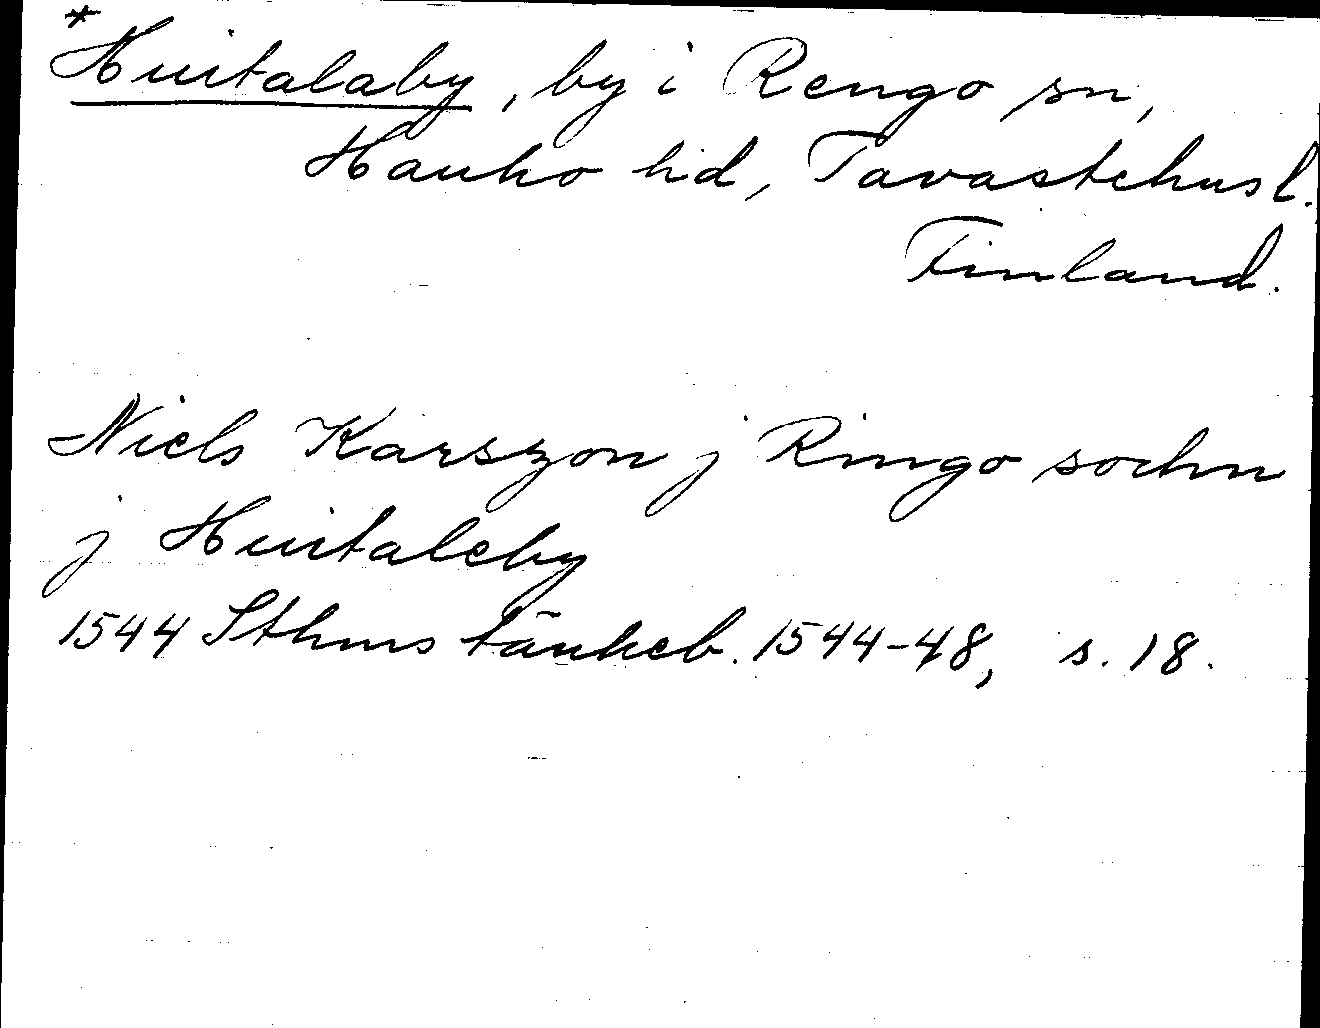 *
Huitalaby, by i Rengo sn,
Hauho hd, Tavastehus l.
Finland.
Niels Karszon j Ringo sochn
j Huitaleby
1544 Sthms tänkeb. 1544-48, s. 18.